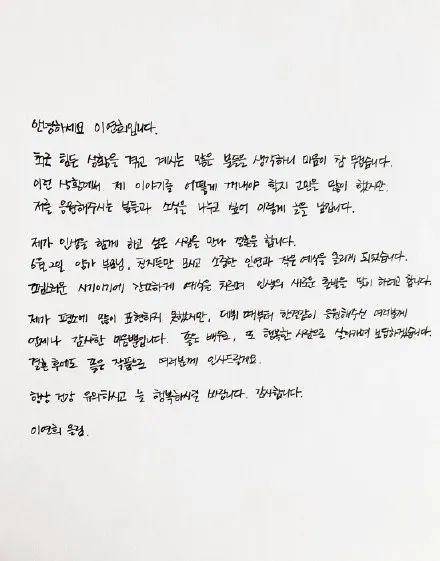 안녕하세요 이연희입니다.
최근 힘든 상황을 겪고 계시는 많은 분들을 생각하니 마음이 참 무겁습니다.
이런 상황에서 제 이야기를 어떻게 꺼내야 할지 고민을 많이 했지만
저를 응원해주시는 분들과 소식을 나누고 싶어 이렇게 글을 남깁니다.
제가 인생을 함께 하고 싶은 사람을 만나 결혼을 합니다.
6월 2일 양가 부모님, 친지들만 모시고 소중한 인연과 작은 예식을 올리게 되었습니다.
조심스러운 시기이기에 간소하게 예식을 치르며 인생의 새로운 출발을 맞이 하려고 합니다.
제가 평소에 많이 표현하지 못했지만, 데뷔 때부터 한결같이 응원해주신 여러분께
언제나 감사한 마음뿐입니다. 좋은 배우로, 또 행복한 사람으로 살아가며 보답하겠습니다.
결혼 후에도 좋은 작품으로 여러분께 인사드릴게요.
항상 건강 유의하시고 늘 행복하시길 바랍니다. 감사합니다.
이연희 올림.